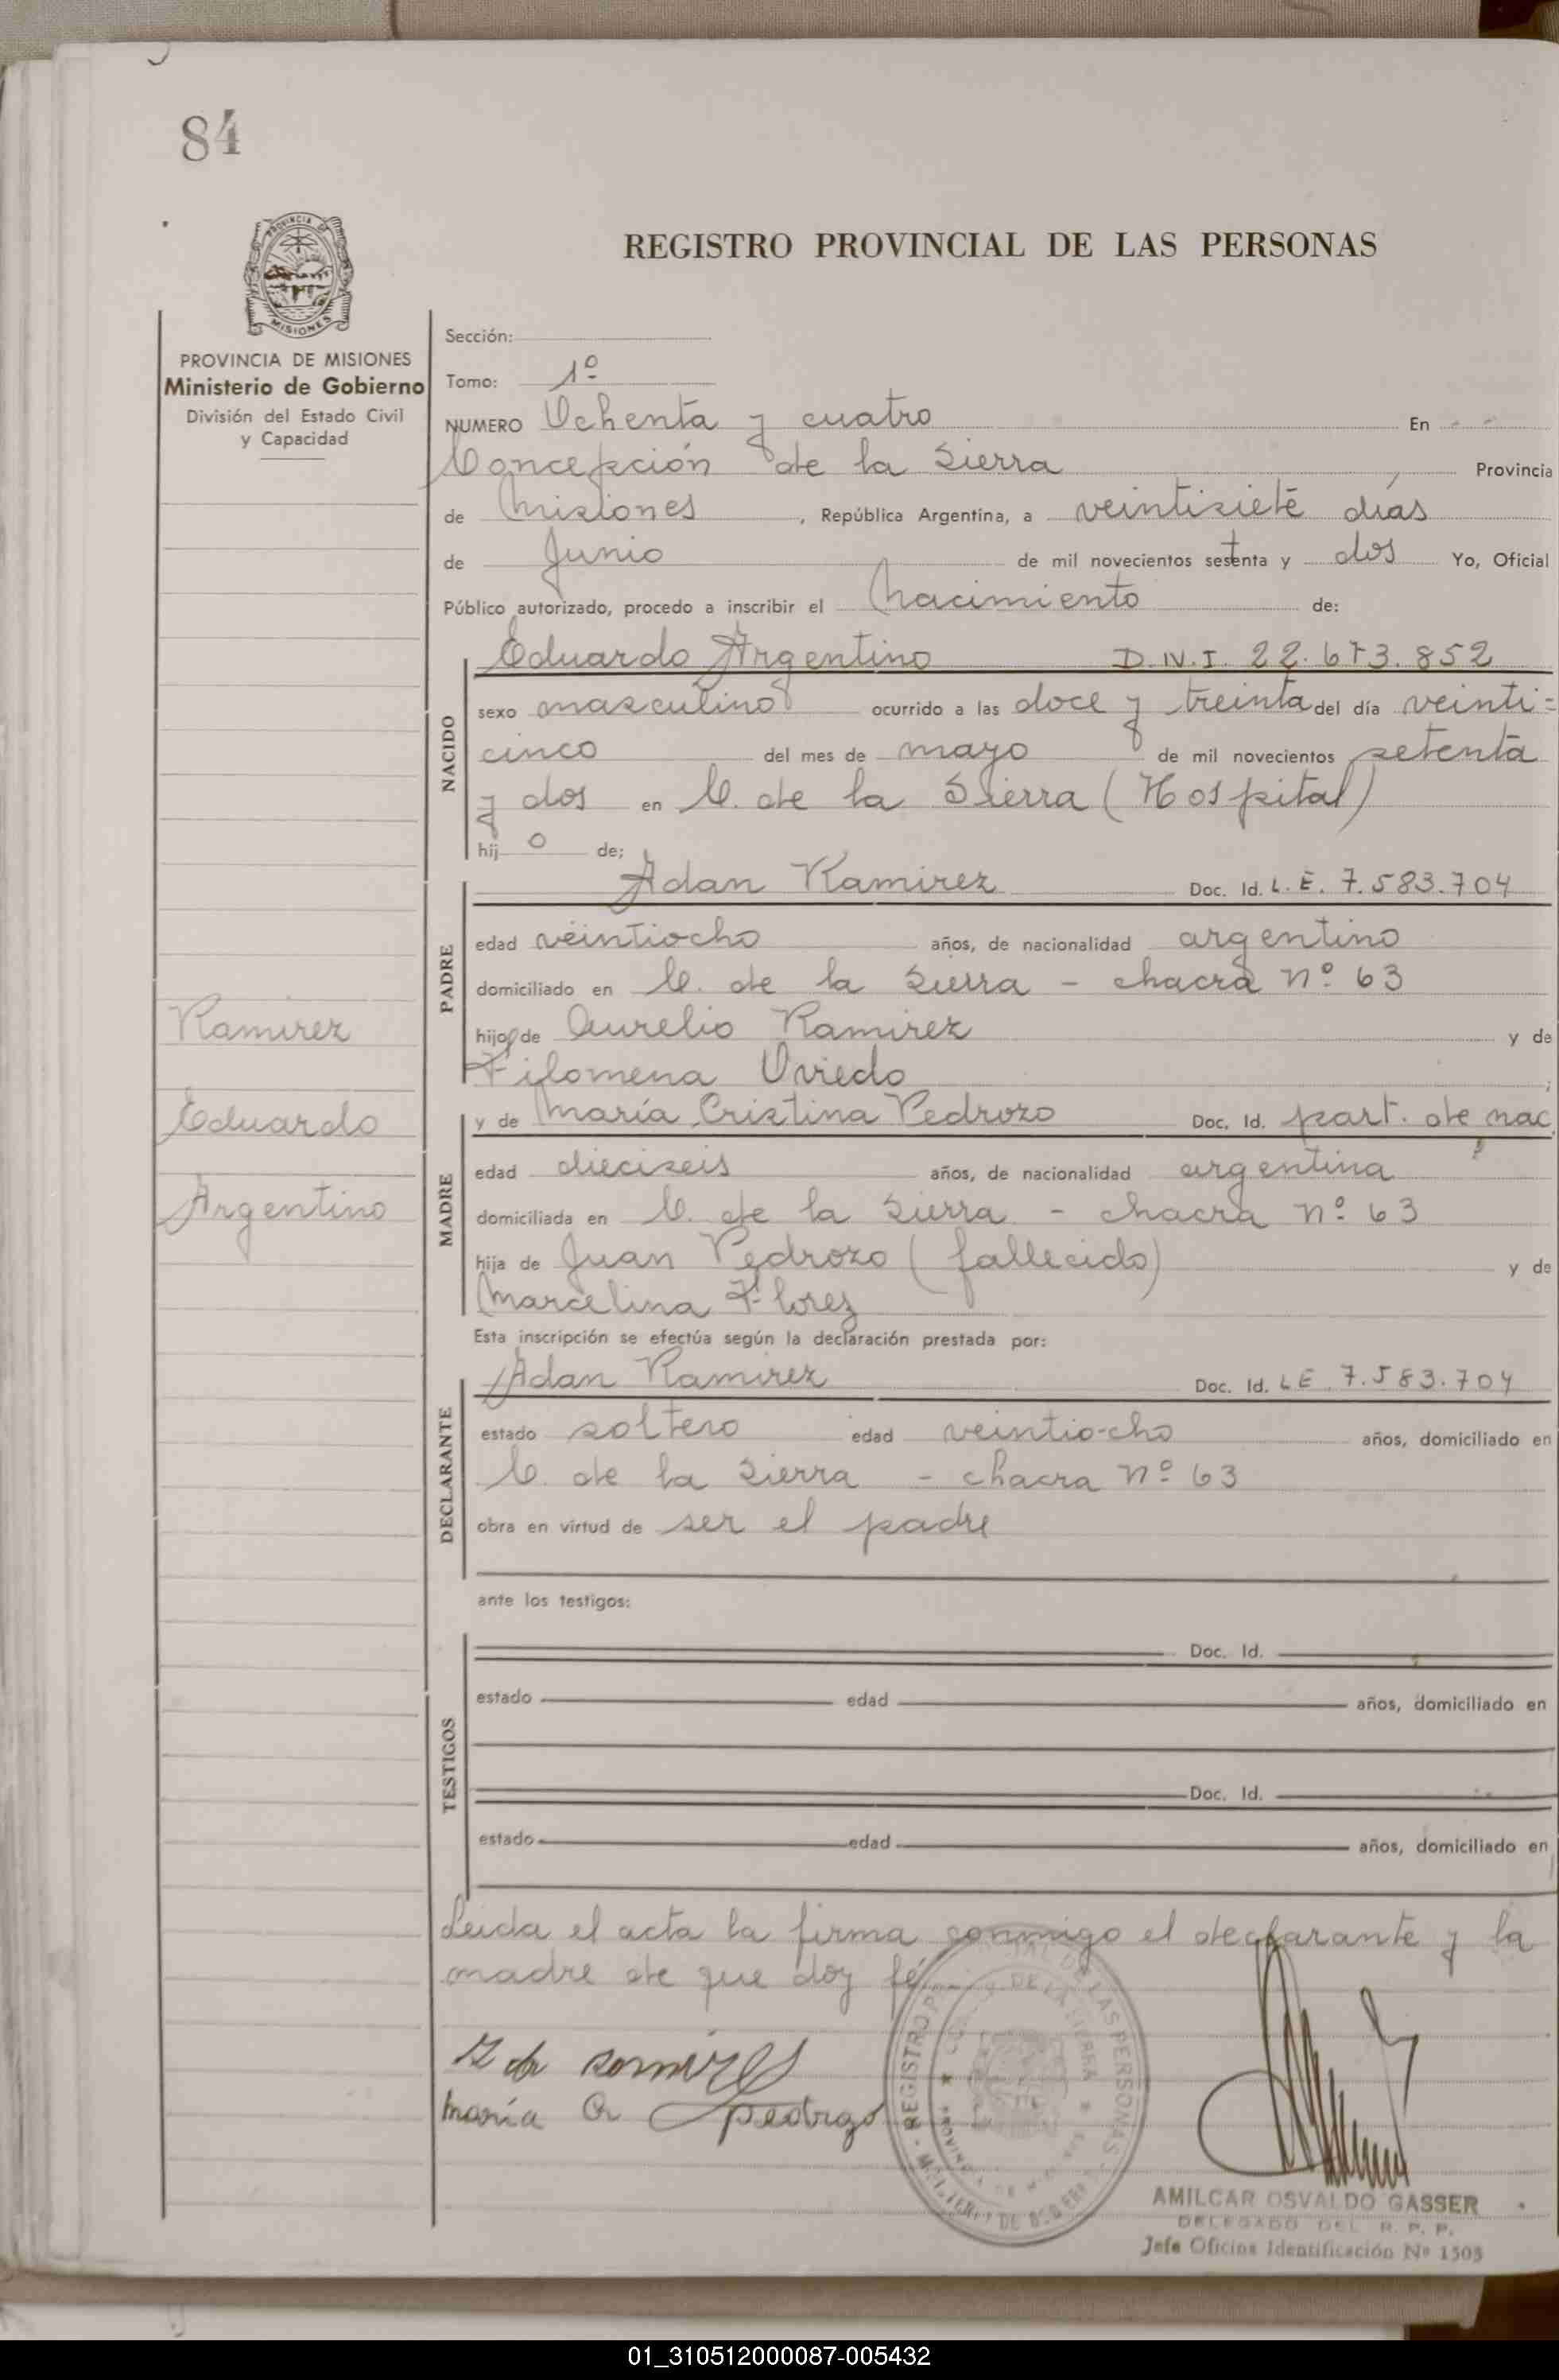 84
REGISTRO PROVINCIAL DE LAS PERSONAS
PROVINCIA DE MISIONES
Ministerio de Gobierno
División del Estado Civil
y Capacidad
Ramirez
Eduardo
Argentino
Sección:
Tomo: 1º
NUMERO Ochenta y cuatro En
Concepción de la Sierra Provincia
de Misiones, República Argentina, a veintisiete días
de Junio de mil novecientos setenta y dos Yo, Oficial
Público autorizado, procedo a inscribir el Nacimiento de:
NACIDO
Eduardo Argentino D.N.I. 22.673.852
sexo masculino ocurrido a las doce y treinta del día veinti=
cinco del mes de mayo de mil novecientos setenta
y dos en C. de la Sierra (Hospital)
hij o de;
PADRE
Adan Ramirez Doc. Id. L.E. 7.583.704
edad veintiocho años, de nacionalidad argentino
domiciliado en C. de la Sierra - chacra nº 63
hijo de Aurelio Ramirez y de
Filomena Oviedo ;
MADRE
y de María Cristina Pedrozo Doc. Id. part. de nac.
edad dieciseis años, de nacionalidad argentina
domiciliada en C. de la Sierra - chacra nº 63
hija de Juan Pedrozo (fallecido) y de
Marcelina Florez
Esta inscripción se efectúa según la declaración prestada por:
DECLARANTE
Adan Ramirez Doc. Id. L E. 7.583.704
estado soltero edad veintiocho años, domiciliado en
C. de la Sierra - chacra nº 63
obra en virtud de ser el padre
ante los testigos:
TESTIGOS
Doc. Id.
estado edad años, domiciliado en
Doc. Id.
estado edad años, domiciliado en
Leida el acta la firma conmigo el declarante y la
madre de que doy fé
María Pedrozo
REGISTRO DE LAS PERSONAS
DE LA SIERRA
AMILCAR OSVALDO GASSER
DELEGADO DEL R. P. P.
Jefe Oficina Identificación Nº 1505
01_310512000087-005432